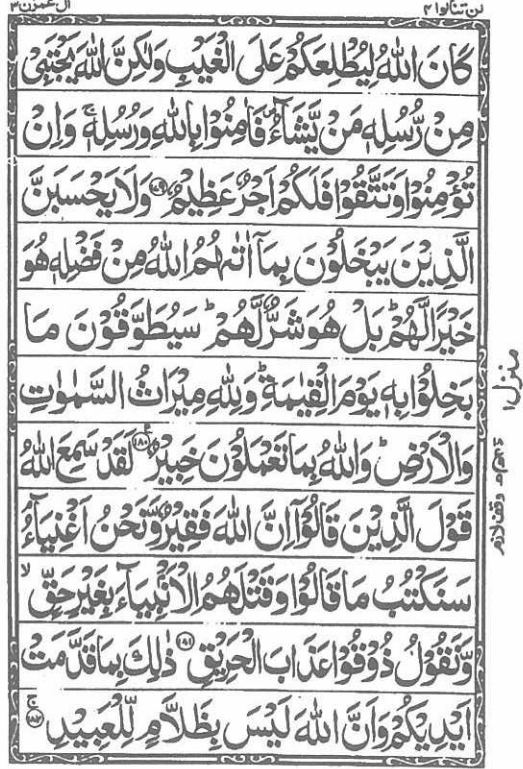 لن تنالوا ٤
اٰل عمرٰن ٣
كَانَ اللّٰهُ لِيُطْلِعَكُمْ عَلَى الْغَيْبِ وَلٰكِنَّ اللّٰهَ يَجْتَبِىْ
مِنْ رُّسُلِهٖ مَنْ يَّشَآءُ ۪ فَاٰمِنُوْا بِاللّٰهِ وَرُسُلِهٖ ۚ وَاِنْ
تُؤْمِنُوْا وَتَتَّقُوْا فَلَكُمْ اَجْرٌ عَظِيْمٌ ﴿۱۷۹﴾ وَلَا يَحْسَبَنَّ
الَّذِيْنَ يَبْخَلُوْنَ بِمَآ اٰتٰىهُمُ اللّٰهُ مِنْ فَضْلِهٖ هُوَ
خَيْرًا لَّهُمْ ؕ بَلْ هُوَ شَرٌّ لَّهُمْ ؕ سَيُطَوَّقُوْنَ مَا
بَخِلُوْا بِهٖ يَوْمَ الْقِيٰمَةِ ؕ وَلِلّٰهِ مِيْرَاثُ السَّمٰوٰتِ
وَالْاَرْضِ ؕ وَاللّٰهُ بِمَا تَعْمَلُوْنَ خَبِيْرٌ ﴿۱۸۰﴾ لَقَدْ سَمِعَ اللّٰهُ
قَوْلَ الَّذِيْنَ قَالُوْٓا اِنَّ اللّٰهَ فَقِيْرٌ وَّنَحْنُ اَغْنِيَآءُ ۘ
سَنَكْتُبُ مَا قَالُوْا وَقَتْلَهُمُ الْاَنْۢبِيَآءَ بِغَيْرِ حَقٍّ ۙ
وَّنَقُوْلُ ذُوْقُوْا عَذَابَ الْحَرِيْقِ ﴿۱۸۱﴾ ذٰلِكَ بِمَا قَدَّمَتْ
اَيْدِيْكُمْ وَاَنَّ اللّٰهَ لَيْسَ بِظَلَّامٍ لِّلْعَبِيْدِ ۚ ﴿۱۸۲﴾
منزل ١
وقف لازم